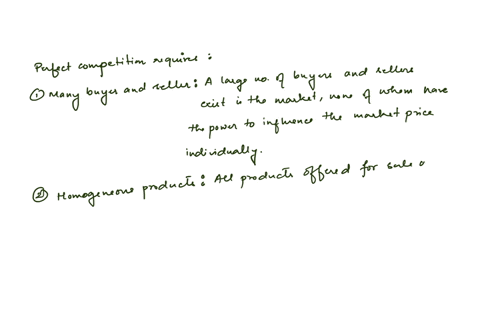 Perfect competition requires :
① Many buyer and seller : A large no. of buyers and sellers
exist is the market, none of whom have
the power to influence the market price
individually.
② Homogeneous products : All products offered for sale